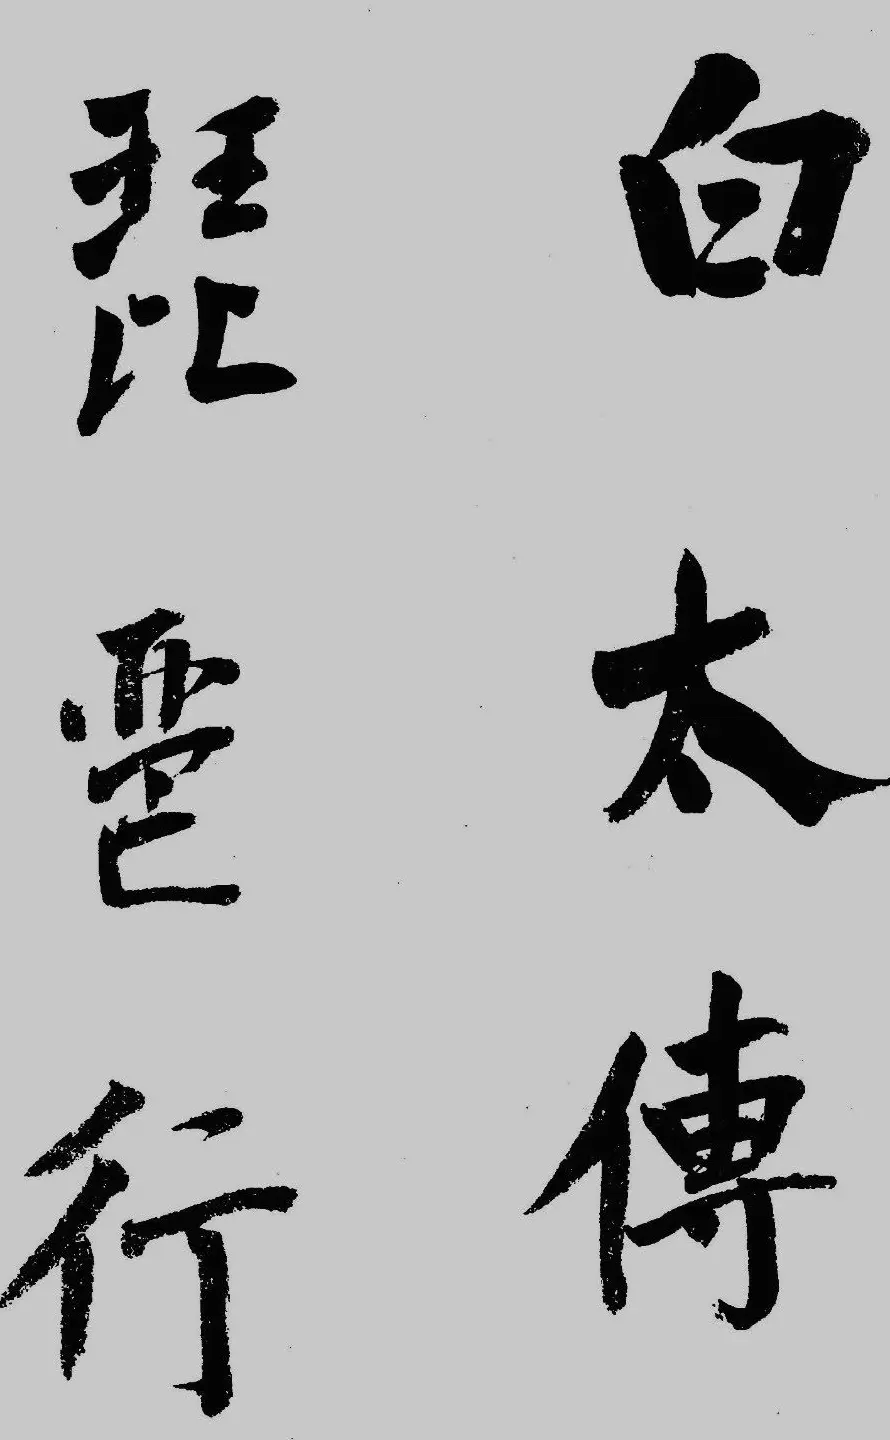 白太傅
琵琶行